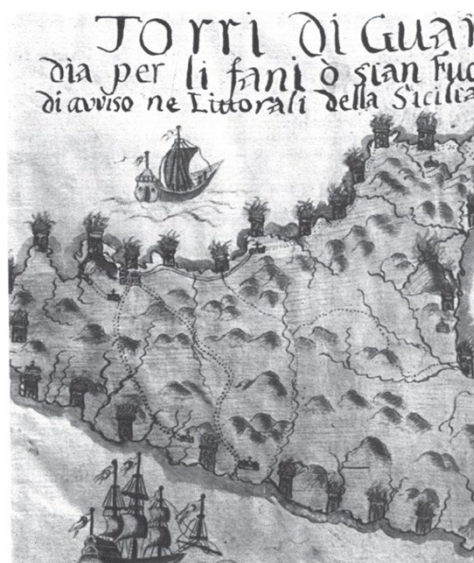 Torri di Guar
dia per li fani ò sian Fuo
di avviso ne Littorali della Sicilia